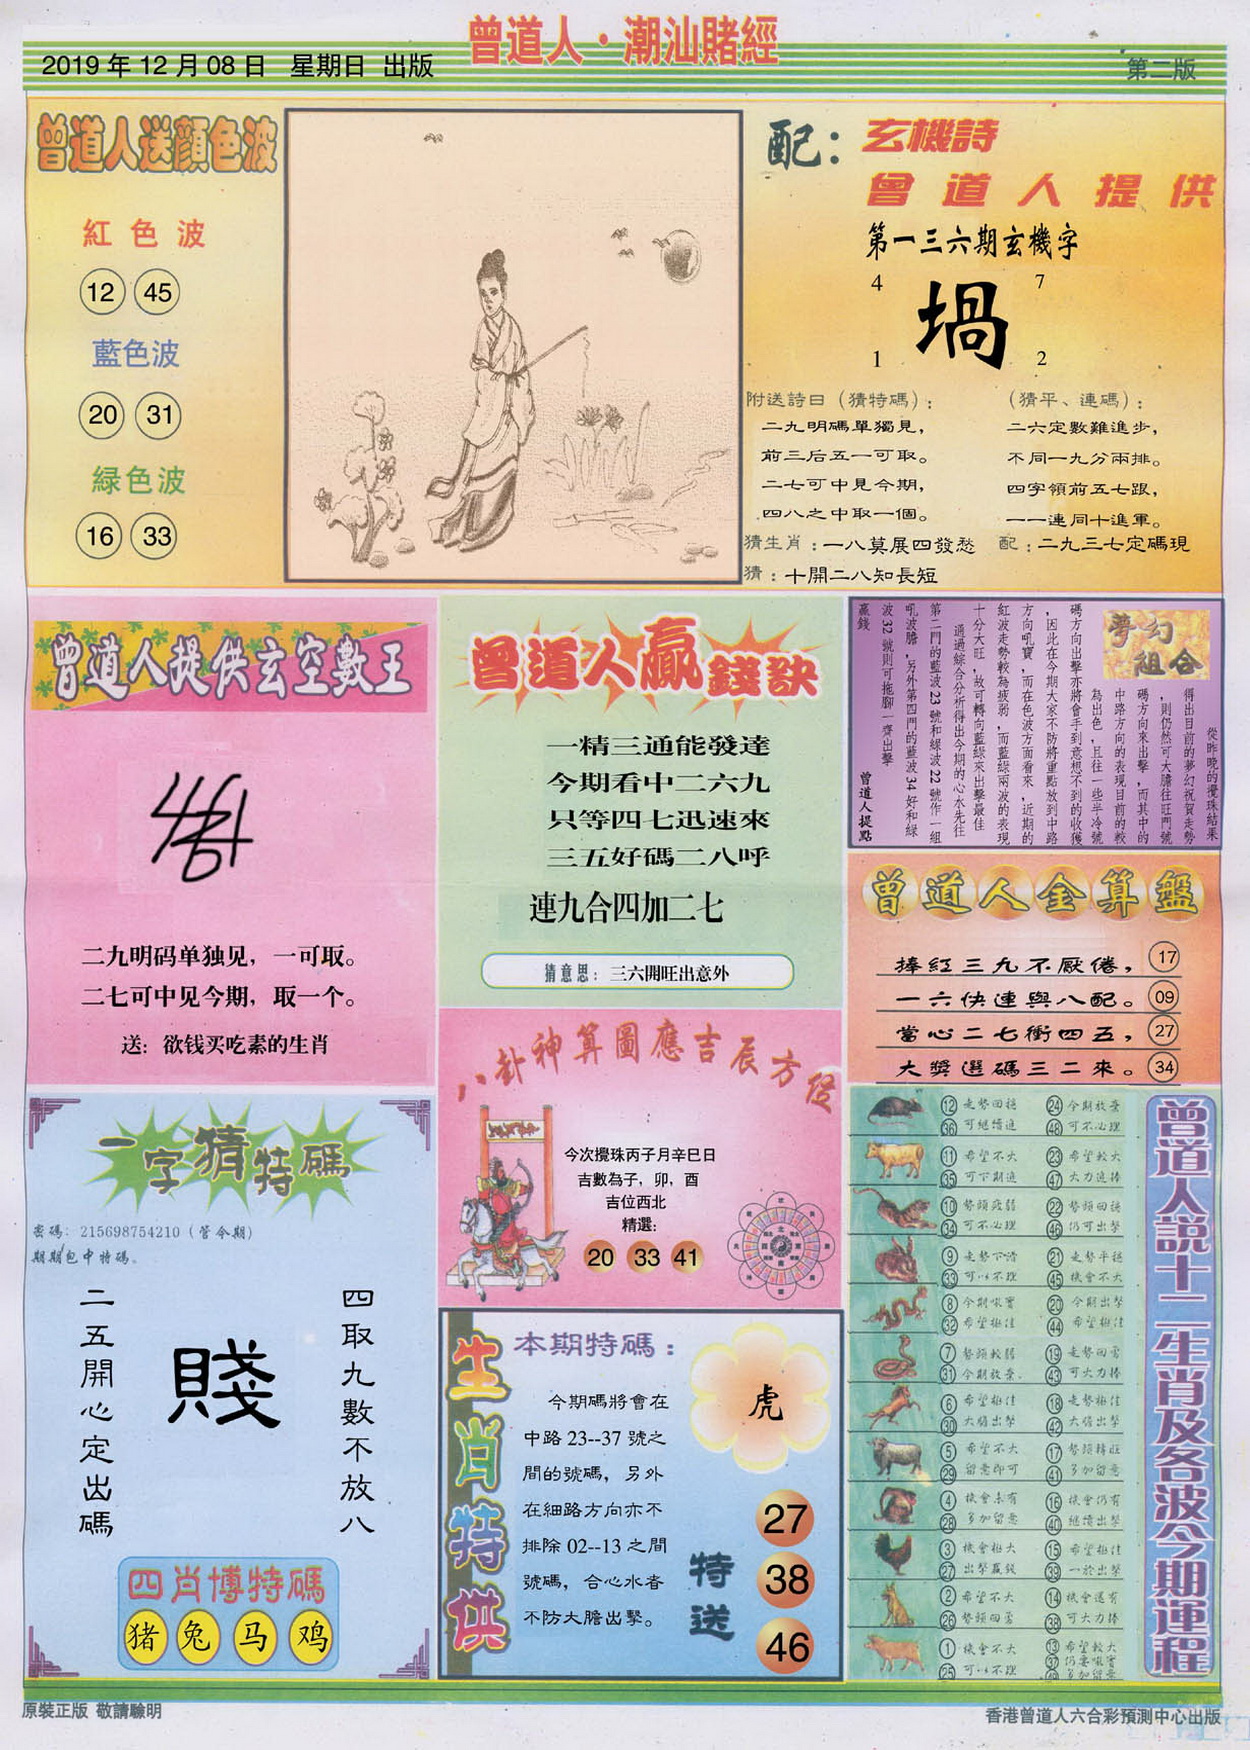 曾道人·潮汕賭經
2019年12月08日 星期日 出版
第二版
曾道人送顏色波
紅色波
12 45
藍色波
20 31
緑色波
16 33
配：玄機詩
曾道人提供
第一三六期玄機字
4 7
堝
1 2
附送詩曰（猜特碼）：
二九明碼單獨見，
前三后五一可取。
二七可中見今期，
四八之中取一個。
（猜平、連碼）：
二六定數難進步，
不同一九分兩排。
四字領前五七跟，
一一連同十進軍。
猜生肖：一八莫展四發愁 配：二九三七定碼現
猜：十開二八知長短
曾道人提供玄空數王
二九明码单独见，一可取。
二七可中见今期，取一个。
送：欲钱买吃素的生肖
曾道人贏錢訣
一精三通能發達
今期看中二六九
只等四七迅速來
三五好碼二八呼
連九合四加二七
猜意思：三六開旺出意外
夢幻組合
從昨晚的攪珠結果
得出目前的夢幻祝賀走勢
，則仍然可大膽往旺門號
碼方向來出擊，而其中的
中路方向的表現目前的較
為出色，且往一些半冷號
碼方向出擊亦將會手到意想不到的收獲
，因此在今期大家不防將重點放到中路
方向吼寶，而在色波方面看來，近期的
紅波走勢較為疲弱，而藍綠兩波的表現
十分大旺，故可轉向藍綠來出擊最佳
通過綜合分析得出今期的心水先往
第二門的藍波23號和綠波22號作一組
吼波膽，另外第四門的藍波34好和綠
波32號則可拖腳一齊出擊
贏錢
曾道人提點
曾道人金算盤
捧紅三九不厭倦，17
一六快連與八配。09
當心二七衝四五，27
大獎選碼三二來。34
一字猜特碼
密碼：215698754210（管今期）
期期包中特碼。
四取九數不放八
賤
二五開心定出碼
四肖博特碼
猪 兔 马 鸡
八卦神算圖應吉辰方位
今次攪珠丙子月辛巳日
吉數為子，卯，酉
吉位西北
精選：
20 33 41
生肖特供
本期特碼：
虎
今期碼將會在
中路23--37號之
間的號碼，另外
在細路方向亦不
排除02--13之間
號碼，合心水者
不防大膽出擊。
特送
27
38
46
曾道人説十二生肖及各波今期運程
12 走勢回穩 24 今期放棄
36 可繼續追 48 可不必理
11 希望不大 23 希望較大
35 可下期追 47 大力追捧
10 勢頭疲弱 22 勢頭回穩
34 可不必理 46 仍可出擊
9 走勢下滑 21 走勢平穩
33 可以不理 45 機會不大
8 今期吼寶 20 今期出擊
32 希望極佳 44 希望極佳
7 勢頭較弱 19 走勢回雷
31 今期放棄 43 可大力捧
6 希望極佳 18 走勢極佳
30 大膽出擊 42 大膽出擊
5 希望不大 17 勢頭轉旺
29 留意即可 41 多加留意
4 機會未有 16 機會仍有
28 多加留意 40 繼續出擊
3 機會極大 15 希望極佳
27 出擊贏錢 39 一於出擊
2 希望不大 14 機會還有
26 勢頭回落 38 可大力捧
1 機會不大 13 希望較大
25 可以不理 37 仍要吼實
49 多加留意
原裝正版 敬請驗明
香港曾道人六合彩預測中心出版